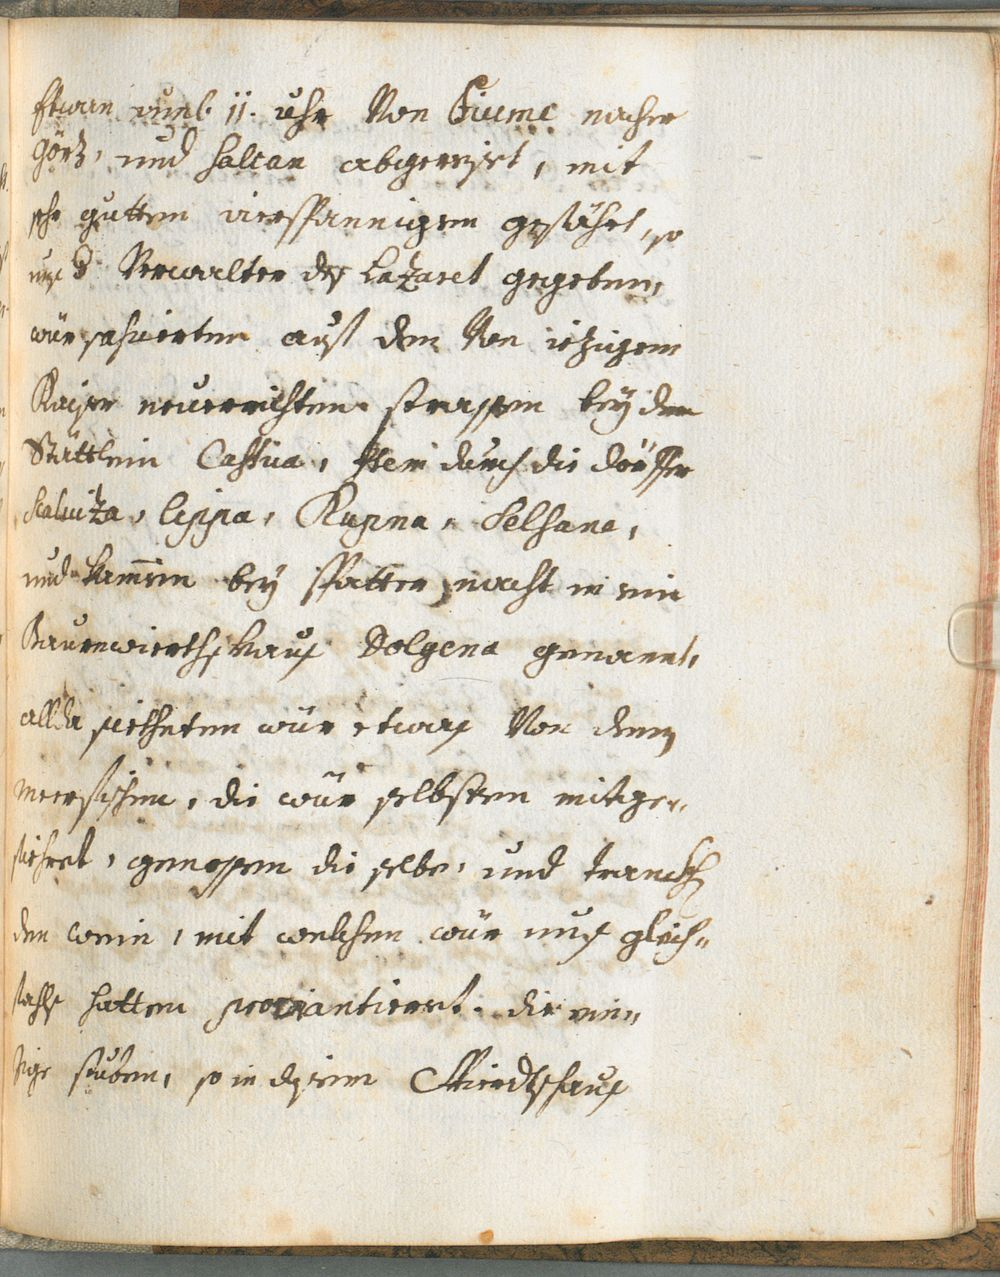 Etwan umb 11. uhr Von Fiume nacher
Görtz, und haltan abgereiset, mit
sehr gutten vierspannigem gefährt, so
uns d Verwalter des Lazaret gegeben,
wür passierten auß dem Von ietzigem
Kayser neuerrichten strassen bey dem
Stättlein Castua, Item durch die dörffer
Scaluiza, Lippa, Rupna, Selsana,
und kammen bey spatter nacht in ein
Baurnwierthshaus Dolgena genannt,
allda sietheten wür etwas Von denen
meerfischen, die wür selbsten mitge„
fiehret, genossen die selbe, und tranckh
den wein, mit welchen wür uns gleich„
fahls hatten proviantiert. die ein„
zige stuben, so in disem Wierdtshaus